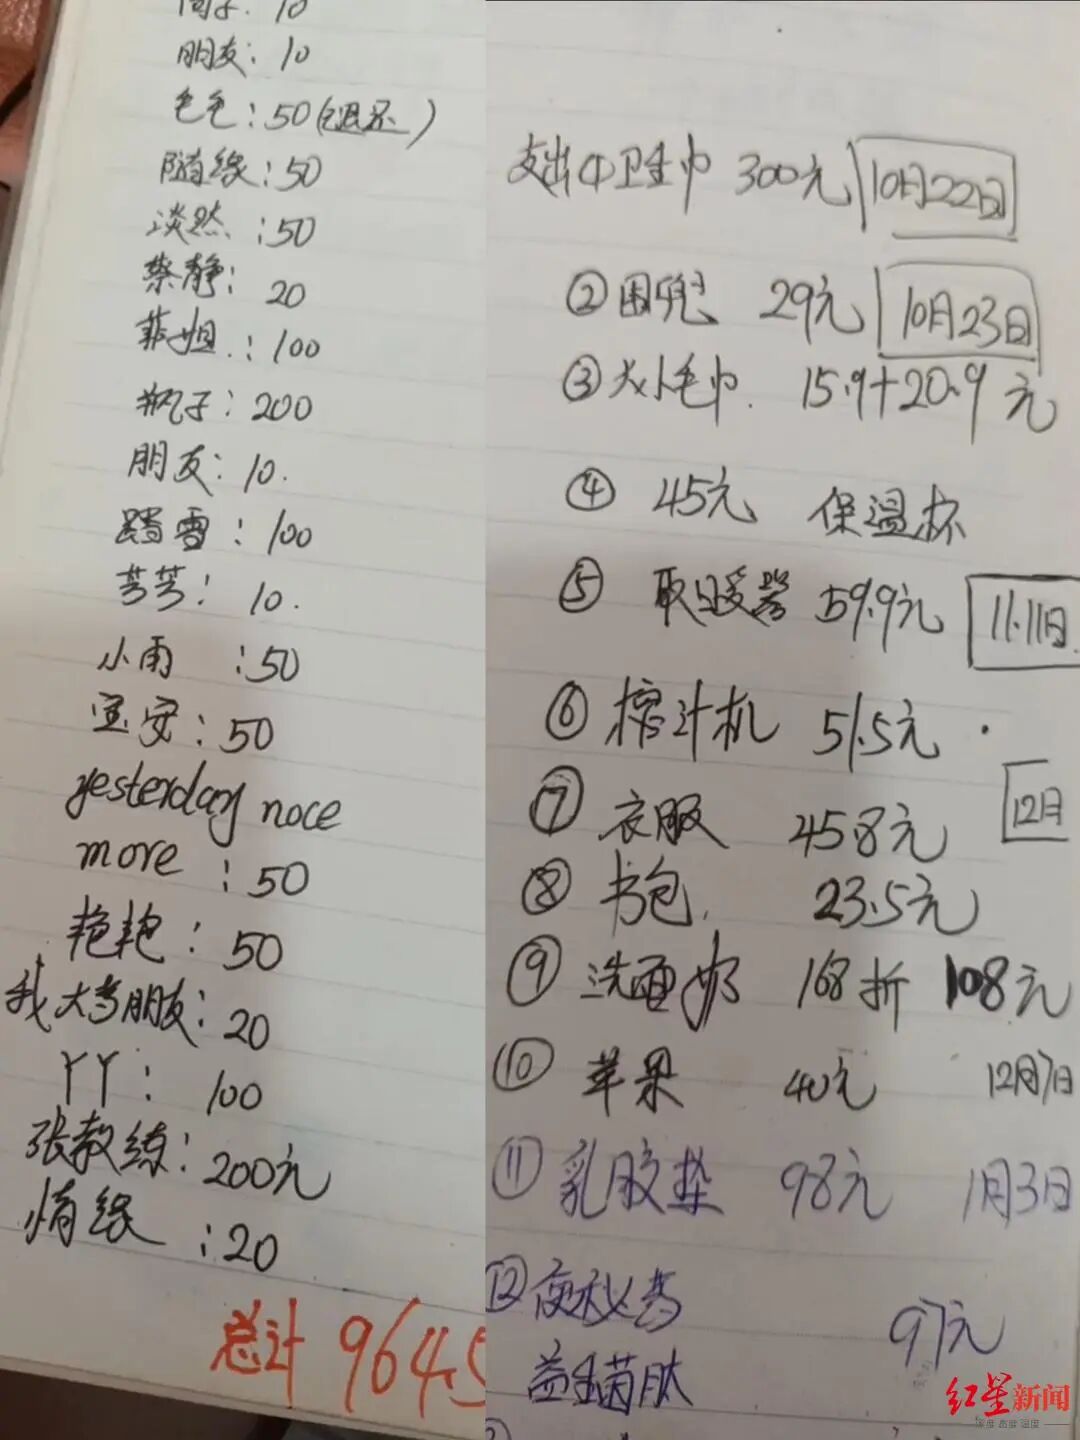 朋友：10
毛毛：50(已退还)
随缘：50
淡然：50
蔡静：20
菲姐：100
瓶子：200
朋友：10.
踏雪：100
芳芳：10.
小雨：50
宝安：50
yesterday noce
more：50
艳艳：50
我大哥朋友：20
丫丫：100
张教练：200元
情缘：20
总计 9645
支出①卫生巾 300元 10月22日
②围兜 29元 10月23日
③大小毛巾. 15.9+20.9元
④ 45元 保温杯
⑤ 取暖器 59.9元 11.11日
⑥ 榨汁机 51.5元
12月
⑦ 衣服 458元
⑧ 书包. 23.5元
⑨ 洗面奶 168折 108元
⑩ 苹果 40元 12月7日
⑪ 乳胶垫 98元 1月3日
⑫ 97元
益生菌肽
红星新闻
深度 态度 温度